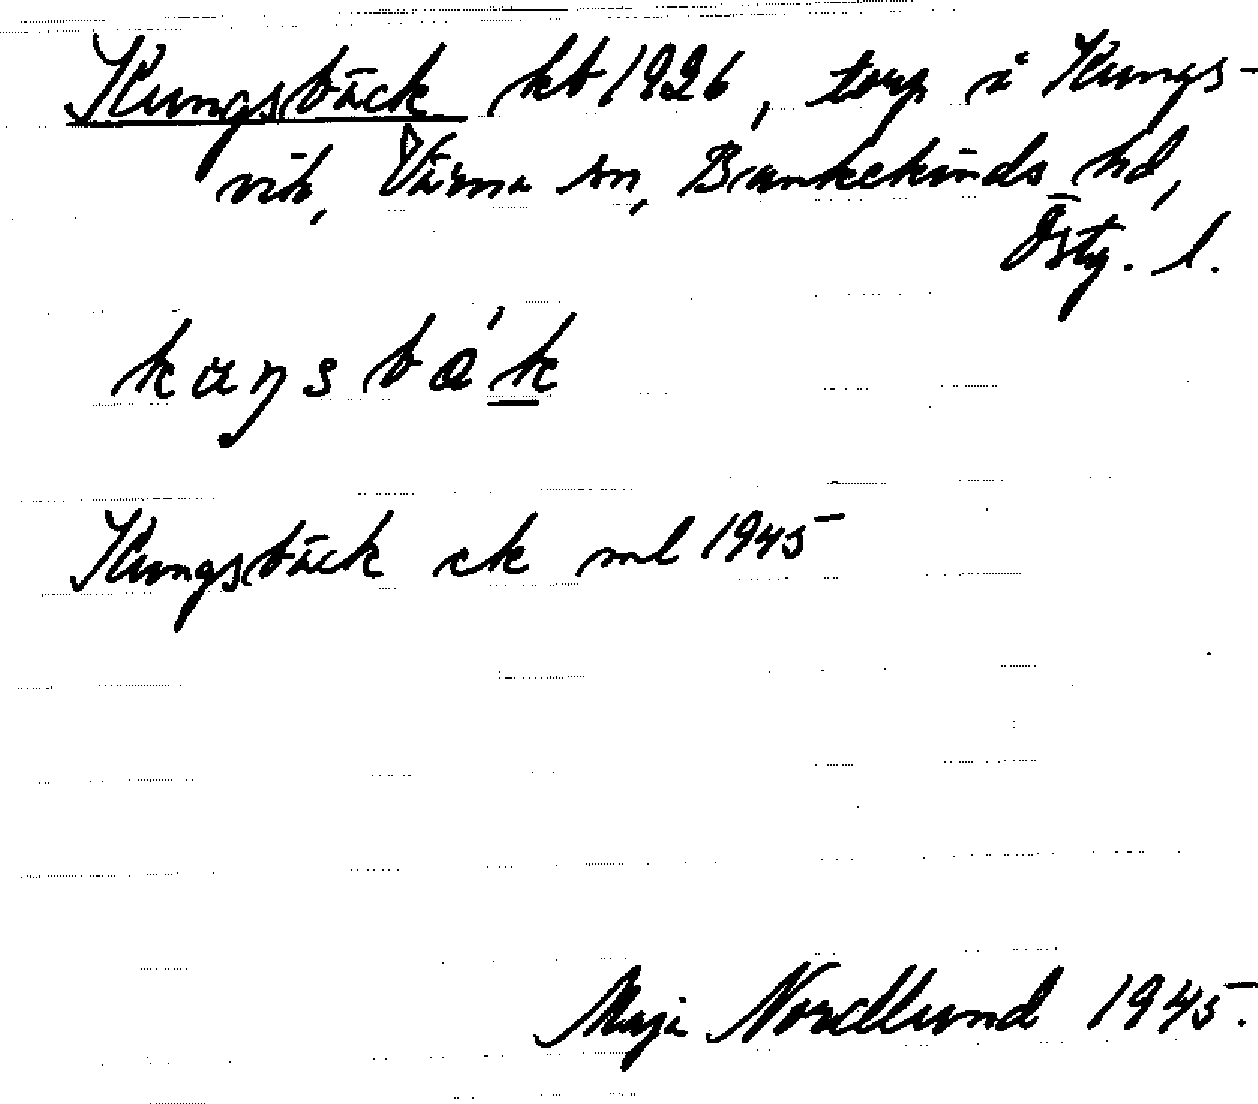 Kungsbäck kb 1926, torp i Kungs-
vik, Värna sn, Bankekinds hd,
Östg. l.
kuŋsbɑ́k
Kungsbäck ek ml 1945
Maja Nordlund 1945.